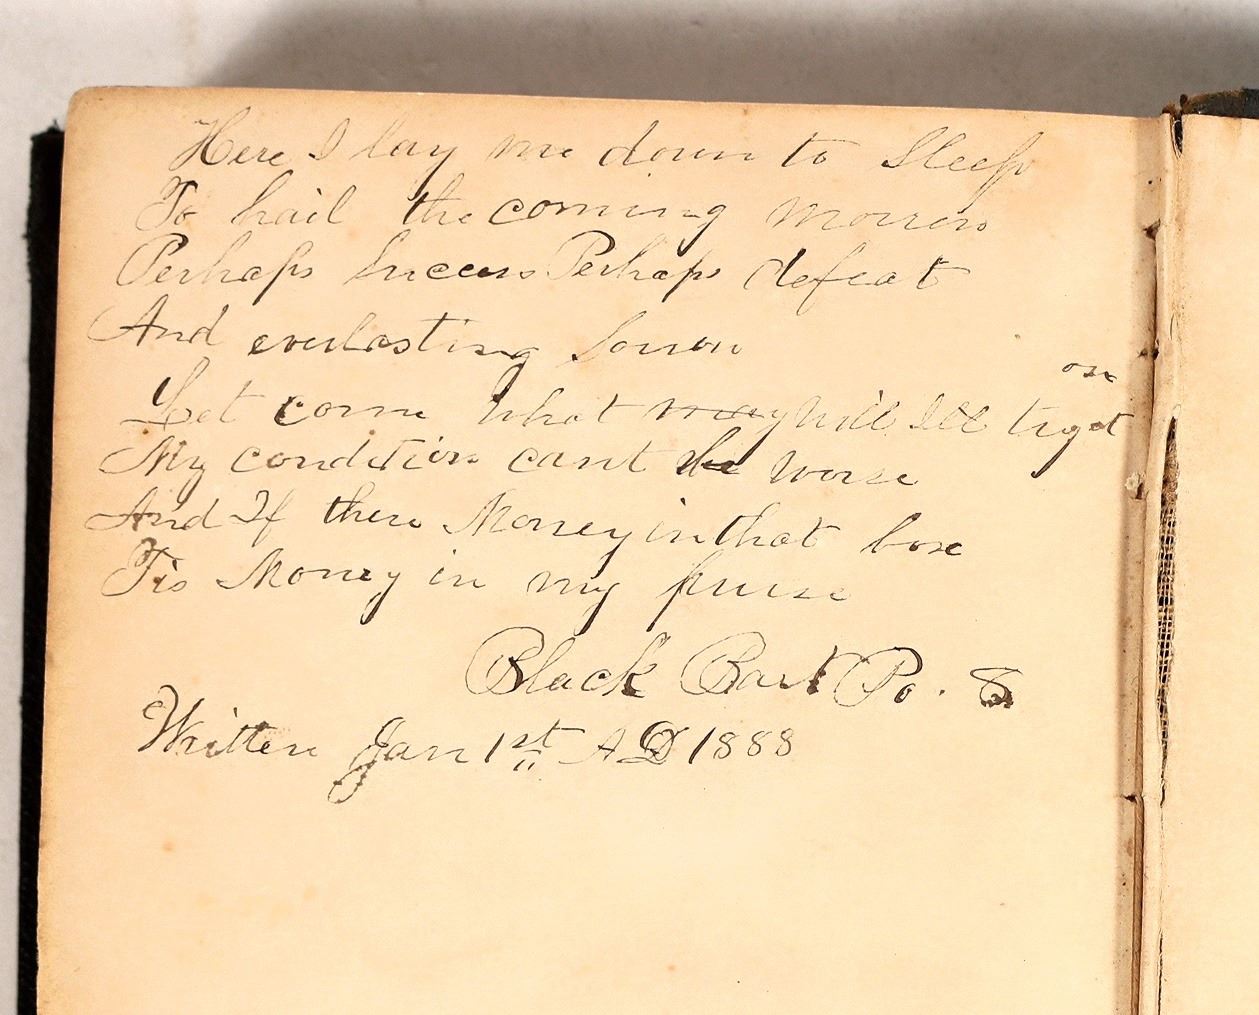 Here I lay me down to Sleep
To hail the coming morrow
Perhaps Success Perhaps defeat
And everlasting Sorrow
on
Let come what may will Ill try it
My condition cant be worse
And If there Money in that box
Tis Money in my purse
Black Bart Po. 8
Written Jan 1st AD 1888